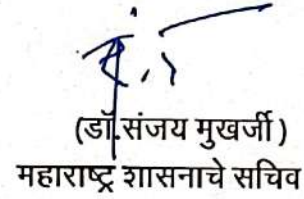 (डॉ.संजय मुखर्जी)
महाराष्ट्र शासनाचे सचिव